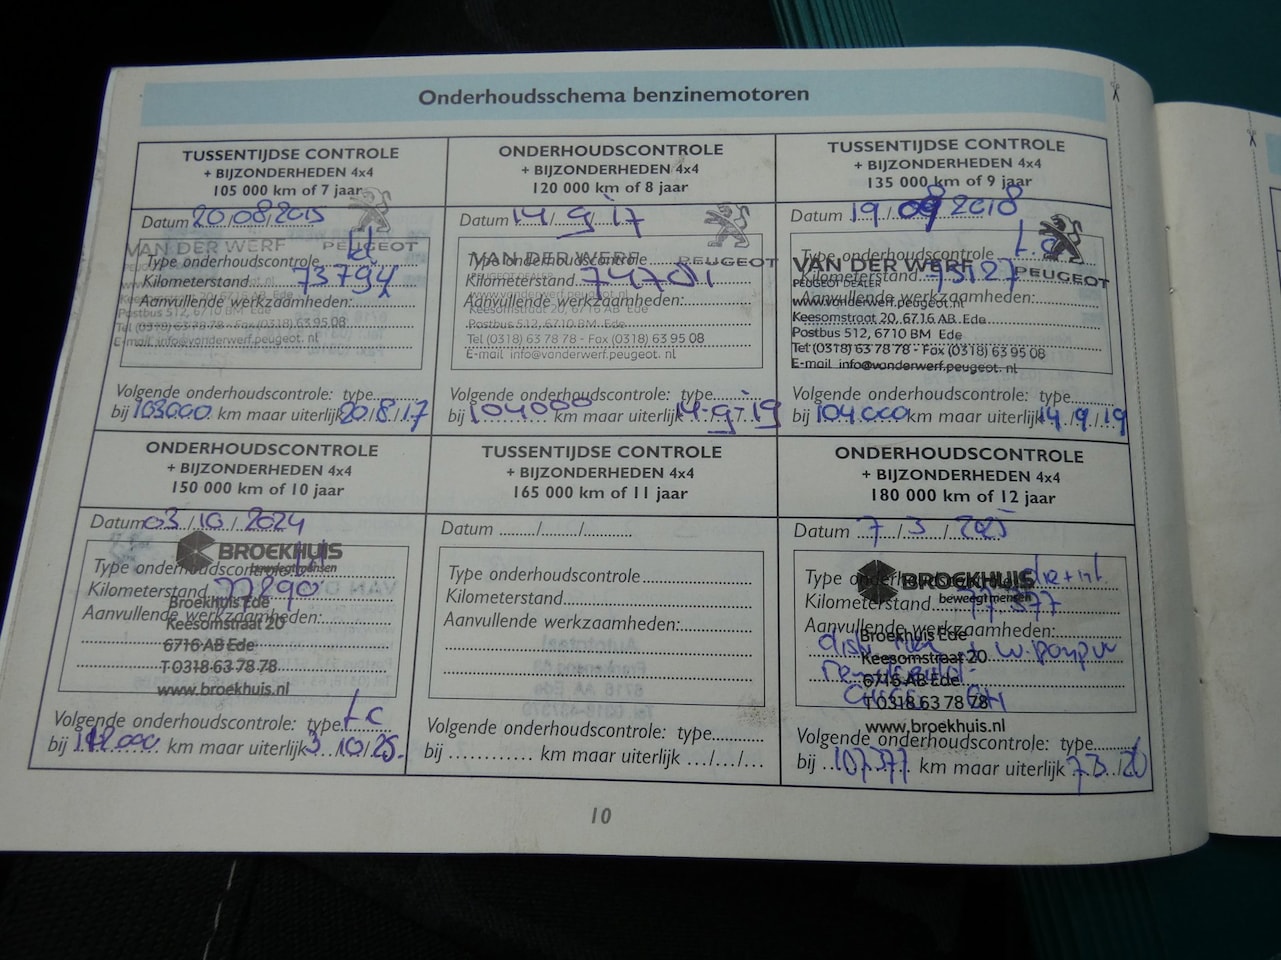 Onderhoudsschema benzinemotoren
TUSSENTIJDSE CONTROLE
+ BIJZONDERHEDEN 4x4
105 000 km of 7 jaar
Datum 20/08/2015
VAN DER WERF
PEUGEOT
Type onderhoudscontrole
Kilometerstand 73794
Aanvullende werkzaamheden:
Postbus 512, 6710 BM Ede
Tel (0318) 63 78 78 - Fax (0318) 63 95 08
E-mail info@vanderwerf.peugeot.nl
Volgende onderhoudscontrole: type
bij 103000 km maar uiterlijk 20/8/17
ONDERHOUDSCONTROLE
+ BIJZONDERHEDEN 4x4
120 000 km of 8 jaar
Datum 14/9/17
VAN DER WERF
PEUGEOT
Type onderhoudscontrole
PEUGEOT DEALER
Kilometerstand 74701
www.vanderwerf.peugeot.nl
Aanvullende werkzaamheden:
Keesomstraat 20, 6716 AB Ede
Postbus 512, 6710 BM Ede
Tel (0318) 63 78 78 - Fax (0318) 63 95 08
E-mail info@vanderwerf.peugeot.nl
Volgende onderhoudscontrole: type
bij 104000 km maar uiterlijk 14-9-19
TUSSENTIJDSE CONTROLE
+ BIJZONDERHEDEN 4x4
135 000 km of 9 jaar
Datum 19/09/2018
Type onderhoudscontrole t.c
VAN DER WERF
PEUGEOT
Kilometerstand
PEUGEOT DEALER
Aanvullende werkzaamheden:
www.vanderwerf.peugeot.nl
Keesomstraat 20, 6716 AB Ede
Postbus 512, 6710 BM Ede
Tel (0318) 63 78 78 - Fax (0318) 63 95 08
E-mail info@vanderwerf.peugeot.nl
Volgende onderhoudscontrole: type
bij 104000 km maar uiterlijk 14/9/19
ONDERHOUDSCONTROLE
+ BIJZONDERHEDEN 4x4
150 000 km of 10 jaar
Datum 03/10/2024
BROEKHUIS
beweegt mensen
Type onderhoudscontrole
Kilometerstand 77290
Broekhuis Ede
Aanvullende werkzaamheden:
Keesomstraat 20
6716 AB Ede
T 0318 63 78 78
www.broekhuis.nl
Volgende onderhoudscontrole: type t.c
bij km maar uiterlijk 3/10/25.
TUSSENTIJDSE CONTROLE
+ BIJZONDERHEDEN 4x4
165 000 km of 11 jaar
Datum ....../....../............
Type onderhoudscontrole
Kilometerstand
Aanvullende werkzaamheden:
Volgende onderhoudscontrole: type
bij ............ km maar uiterlijk .../.../...
ONDERHOUDSCONTROLE
+ BIJZONDERHEDEN 4x4
180 000 km of 12 jaar
Datum 7/3/2025
BROEKHUIS
beweegt mensen
Type onderhoudscontrole
Kilometerstand 77377
Aanvullende werkzaamheden:
Broekhuis Ede
+ w.pomp
Keesomstraat 20
6716 AB Ede
T 0318 63 78 78
www.broekhuis.nl
Volgende onderhoudscontrole: type
bij 107377 km maar uiterlijk 7/3/26
10